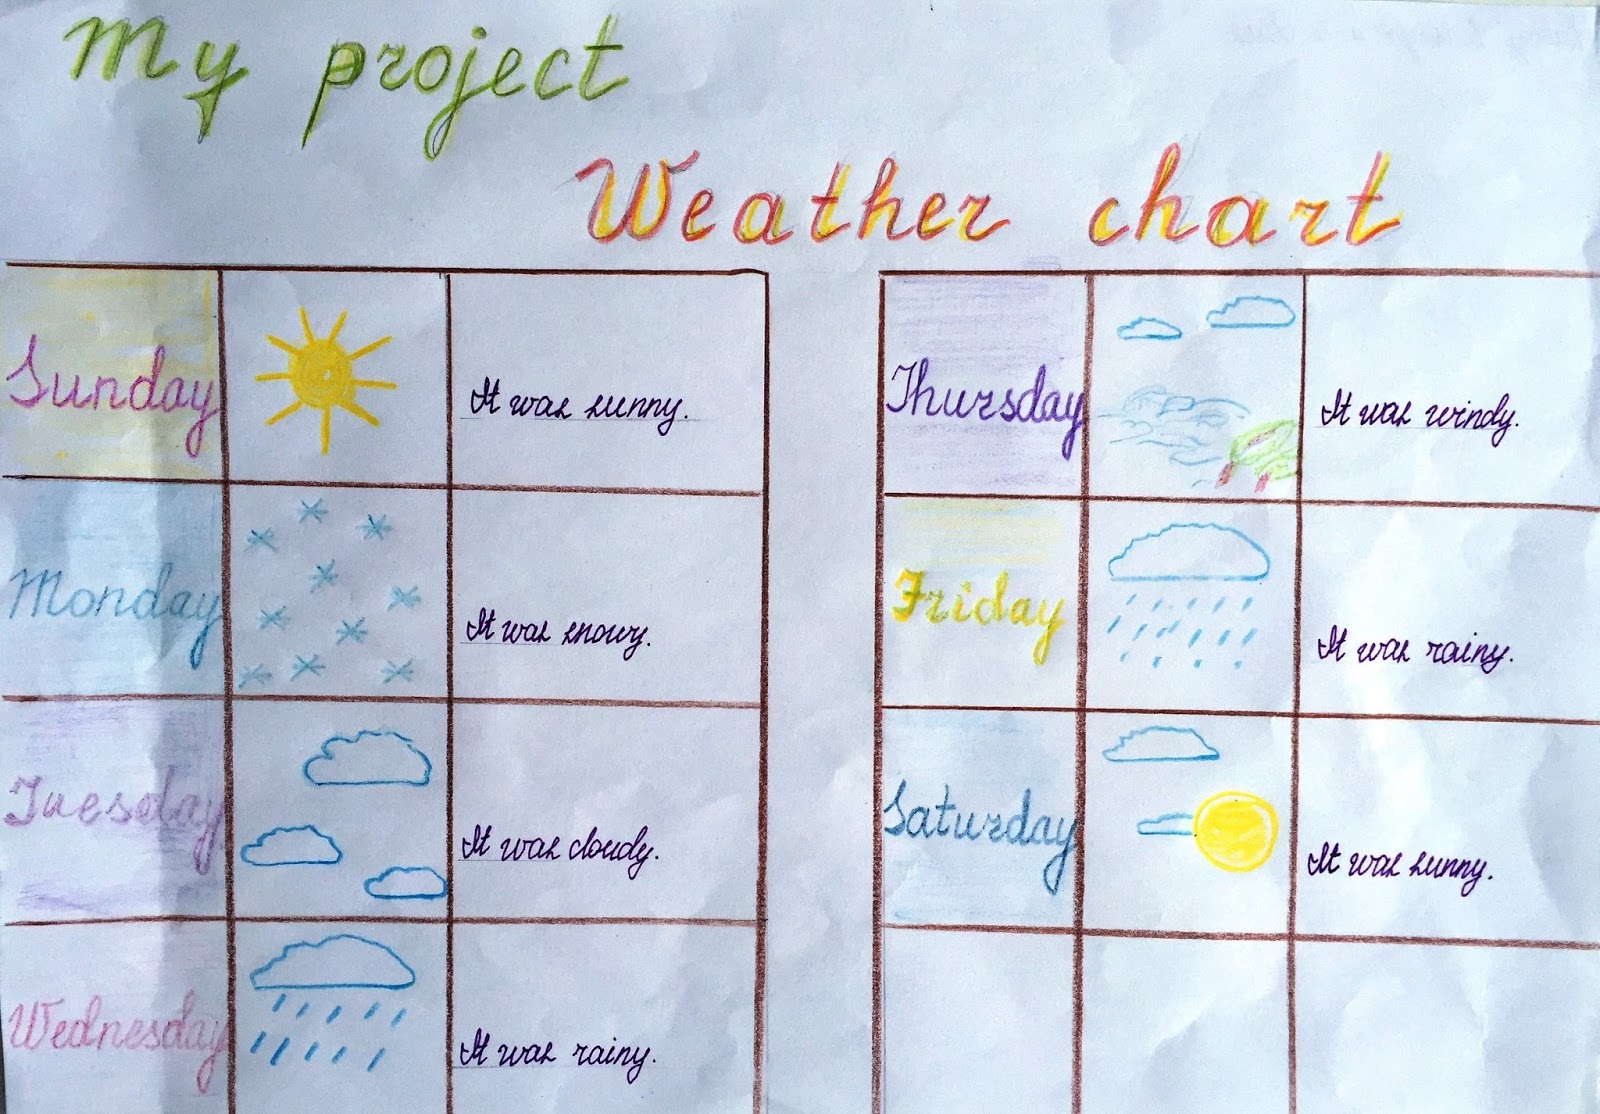 My project
Weather chart
Sunday
It was sunny.
Monday
It was snowy.
Tuesday
It was cloudy.
Wednesday
It was rainy.
Thursday
It was windy.
Friday
It was rainy.
Saturday
It was sunny.